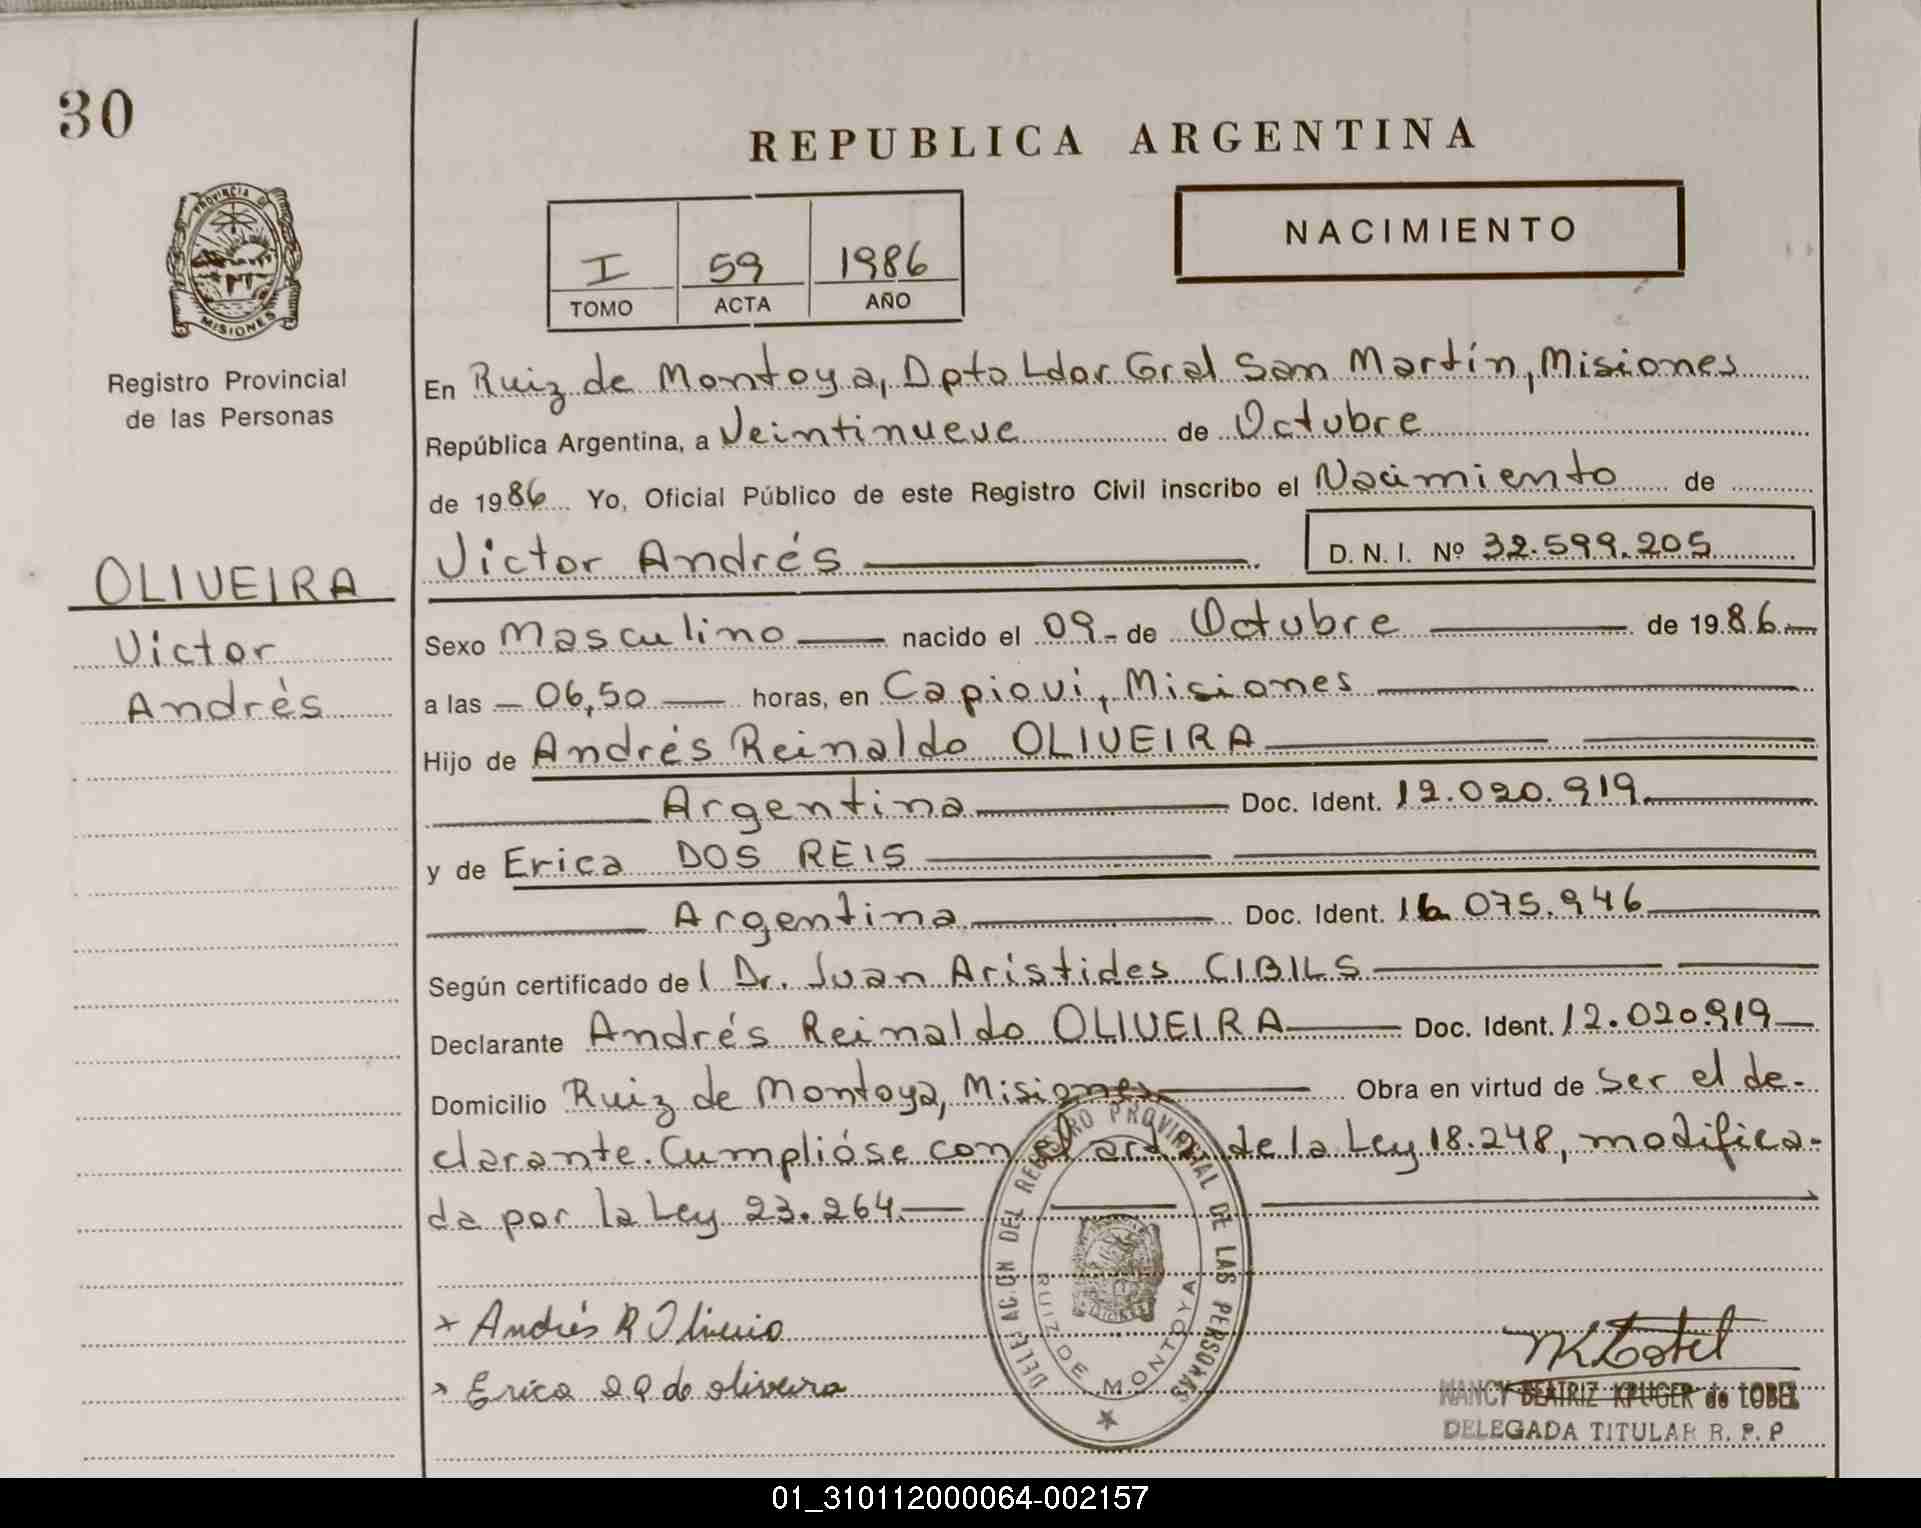 30
REPUBLICA ARGENTINA
PROVINCIA DE
MISIONES
NACIMIENTO
I 59 1986
TOMO ACTA AÑO
Registro Provincial
de las Personas
En Ruiz de Montoya, Dpto Ldor Gral San Martín, Misiones
República Argentina, a Veintinueve de Octubre
de 1986 Yo, Oficial Público de este Registro Civil inscribo el Nacimiento de
OLIVEIRA
Victor
Andrés
Victor Andrés
D. N. I. Nº 32.599.205
Sexo Masculino nacido el 09 de Octubre de 1986
a las 06,50 horas, en Capioví, Misiones
Hijo de Andrés Reinaldo OLIVEIRA
Argentina Doc. Ident. 12.020.919
y de Erica DOS REIS
Argentina Doc. Ident. 16.075.946
Según certificado del Dr. Juan Arístides CIBILS
Declarante Andrés Reinaldo OLIVEIRA Doc. Ident. 12.020.919
Domicilio Ruiz de Montoya, Misiones Obra en virtud de ser el de-
clarante. Cumplióse con el de la Ley 18.248, modifica-
da por la Ley 23.264.
DELEGACION DEL REGISTRO PROVINCIAL DE LAS PERSONAS
RUIZ DE MONTOYA
x Andrés R Oliveira
x Erica de Oliveira
NANCY BEATRIZ KRUGER de LOBEL
DELEGADA TITULAR R. P. P
01_310112000064-002157